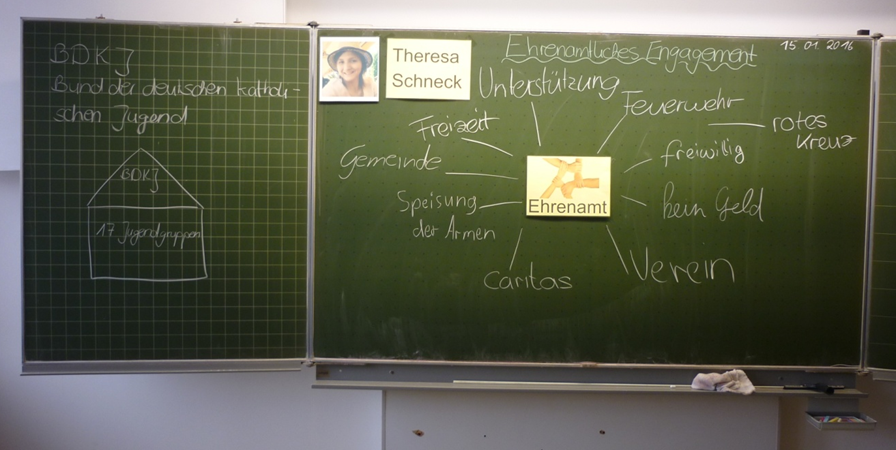 BDKJ
Bund der deutschen katholi-
schen Jugend
BDKJ
17 Jugendgruppen
Theresa
Schneck
Ehrenamtliches Engagement
15.01.2016
Unterstützung
Feuerwehr
rotes
Kreuz
Freizeit
freiwillig
Gemeinde
Ehrenamt
Speisung
der Armen
kein Geld
Caritas
Verein